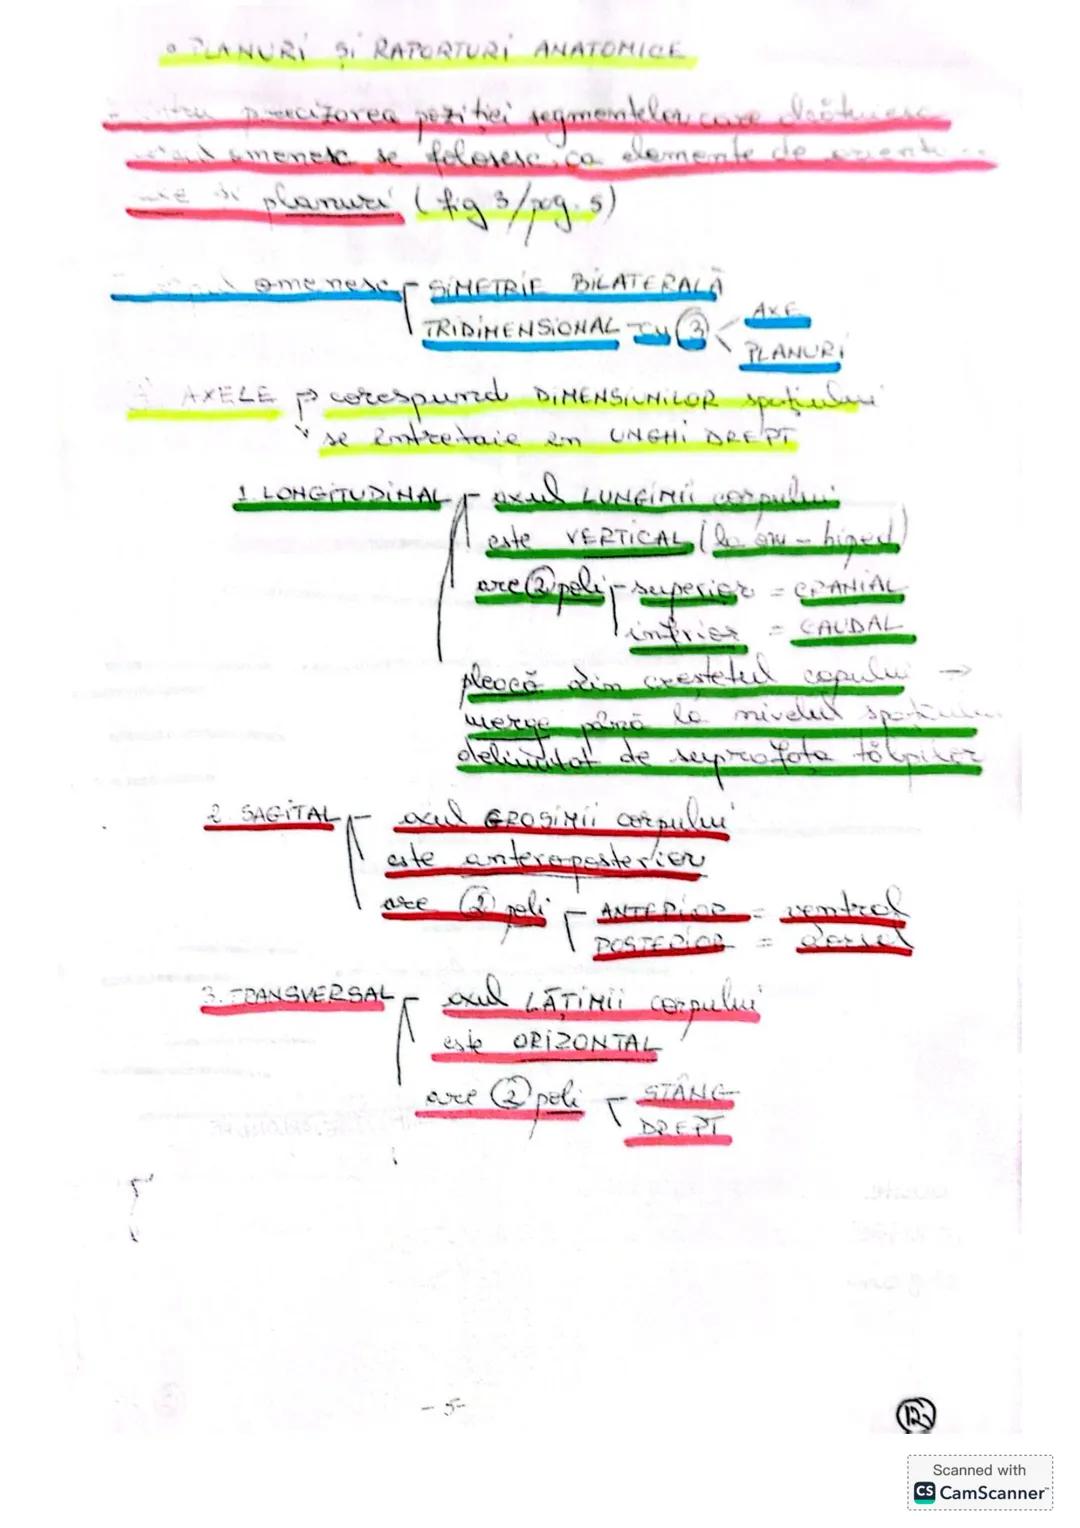 • PLANURI ȘI RAPORTURI ANATOMICE
precizarea poziției segmentelor care alcătuiesc
omenesc se folosesc, ca elemente de
și planuri (fig 3/pag. 5)
omenesc SIMETRIE BILATERALĂ
TRIDIMENSIONAL CU 3 AXE
PLANURI
AXELE → corespund DIMENSIUNILOR spațiului
se întretaie în UNGHI DREPT
1. LONGITUDINAL axul LUNGIMII corpului
este VERTICAL (la om - biped)
are 2 poli superior = CRANIAL
inferior = CAUDAL
pleacă din creștetul capului →
merge până la nivelul spațiului
delimitat de suprafața tălpilor
2. SAGITAL axul GROSIMII corpului
este anteroposterior
are 2 poli ANTERIOR = ventral
POSTERIOR = dorsal
3. TRANSVERSAL axul LĂȚIMII corpului
este ORIZONTAL
are 2 poli STÂNG
DREPT
- 5 -
12
Scanned with
CS CamScanner